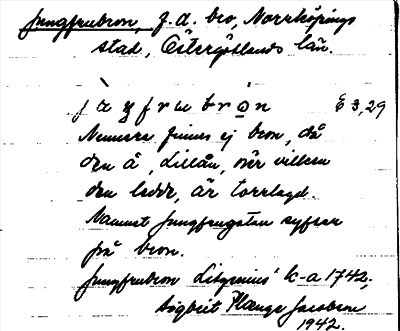 Jungfrubron, f. d. bro, Norrköpings
stad, Östergötlands län.
E 3,29
Numera finnes ej bron, då
den å, Lillån, över vilken
den ledde, är torrlagd.
Namnet Jungfrugatan syftar
på bron.
Jungfrubron Litzenius' k-a 1742.
Sigbrit Plænge Jacobson
1942.